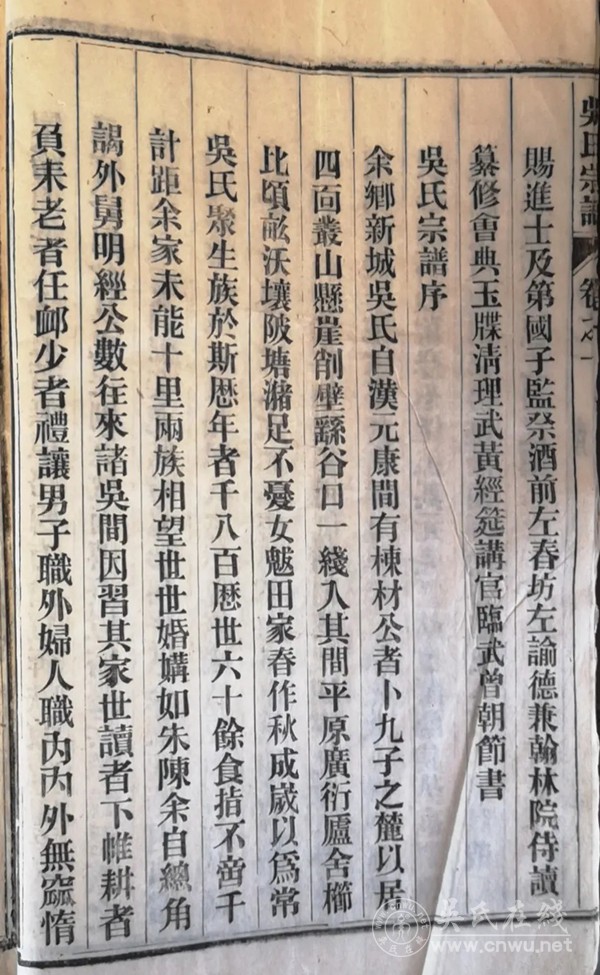 吳氏宗譜 卷之一
賜進士及第國子監祭酒前左春坊左諭德兼翰林院侍讀
纂修會典玉牒淸理武黃經筵講官臨武曾朝節書
吳氏宗譜序
余鄉新城吳氏自漢元康間有棟材公者卜九子之麓以居
四面叢山懸崖削壁繇谷口一綫入其間平原廣衍廬舍櫛
比頃畝沃壤陂塘瀦足不憂女魃田家春作秋成歲以爲常
吳氏聚生族於斯歷年者千八百歷世六十餘食指不啻千
計距余家未能十里兩族相望世世婚媾如朱陳余自總角
謁外舅明經公數往來諸吳間因習其家世讀者下帷耕者
負耒老者任卹少者禮讓男子職外婦人職內內外無窳惰
吳氏在线
www.cnwu.net